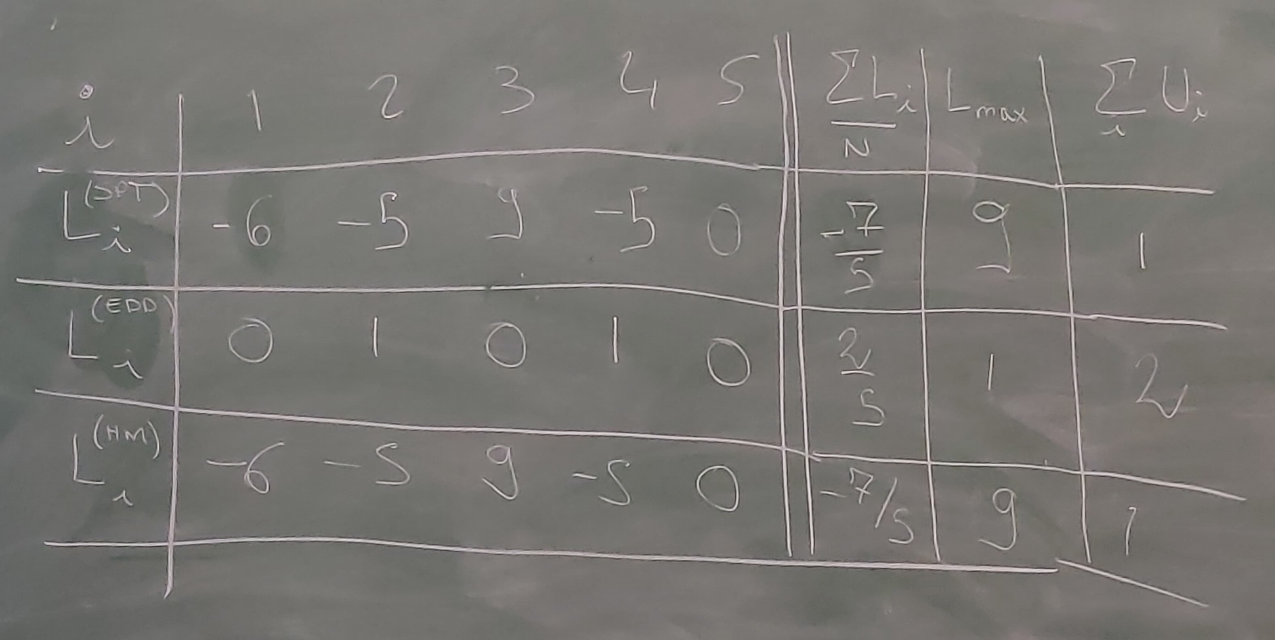 i 1 2 3 4 5 ΣL_i/N L_max Σ_i U_i
L_i^(SPT) -6 -5 9 -5 0 -7/5 9 1
L_i^(EDD) 0 1 0 1 0 2/5 1 2
L_i^(HM) -6 -5 9 -5 0 -7/5 9 1